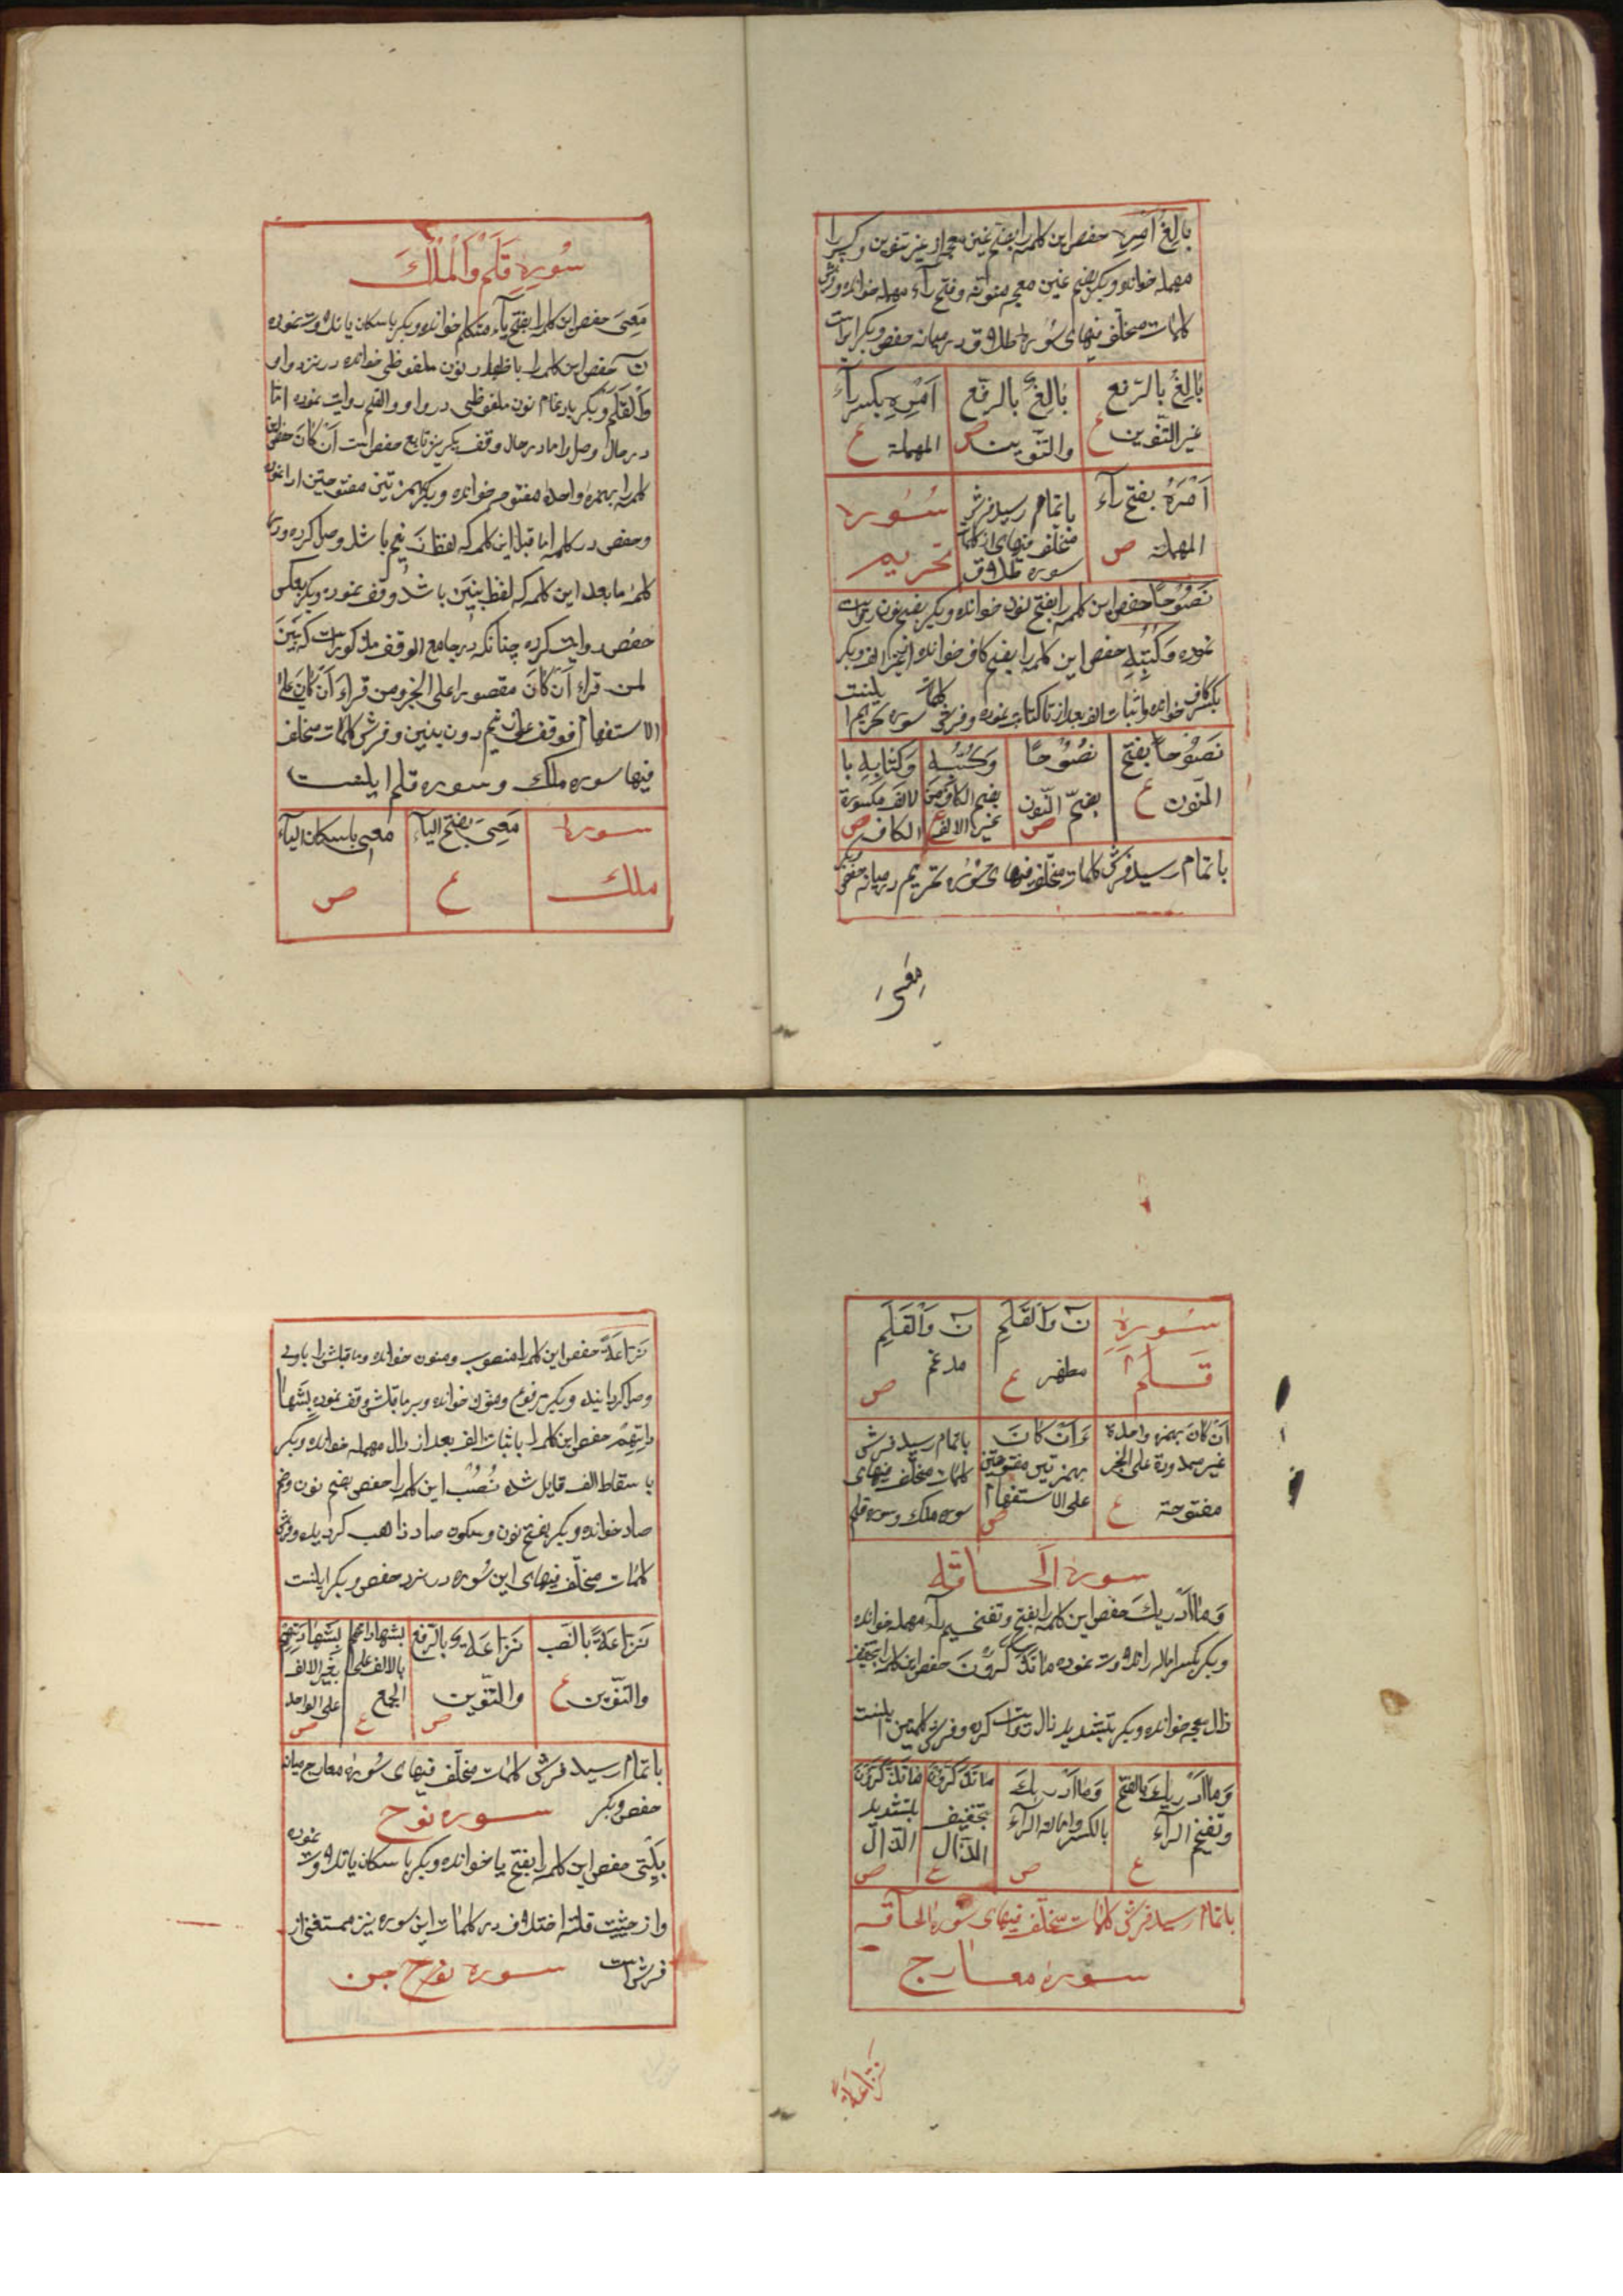 بالِغُ اَمْرِهِ حفص این کلمه را بفتح غین معجمه از غیر تنوین و کسر را
مهمله خوانده و بکر بضم غین معجمه منونه و فتح رآء مهمله خوانده و فرش
کلمات مختلف فیهای سوره طلاق در میانه حفص و بکر اینست
بالِغُ بالرّفع غیر التّنوین ع
بالِغٌ بالرفع والتّنوین ص
اَمْرِهِ بکسر رآء المهملة ع
اَمْرَهُ بفتح رآء المهملة ص
باتمام رسید فرش مختلف فیهای از کلمات سوره طلاق
سُورهٔ تحریم
نَصُوحًا حفص این کلمه را بفتح نون خوانده و بکر بضم نون روایت
نموده وَکُتُبِهِ حفص این کلمه را بضم کاف خوانده از غیر الف و بکر
بکسر کاف خوانده و اثبات الف بعد از تا کتابت نموده و فرش کلمات سوره تحریم اینست
نَصُوحاً بفتح النّون ع
نُصُوحًا بضمّ النّون ص
وَکُتُبِهِ بضم الکاف من غیر الالف ع
وَکتابِهِ با لالف مکسورة الکاف ص
باتمام رسید فرش کلمات مختلف فیهای سُوره تحریم در میانه حفص و بکر
مَعِیَ
سُورهِ قَلَم وَالْمُلْكَ
مَعِیَ حفص این کلمه را بفتح یآء متکلم خوانده و بکر باسکان یا تلاوت نموده
نٓ حفص این کلمه را باظهار نون ملفوظی خوانده در نزد واو
وَالْقَلَمِ و بکر بادغام نون ملفوظی در واو والقلم روایت نموده امّا
در حال وصل و اما در حال وقف بکر نیز تابع حفص است اَنْ کانَ حفص این
کلمه را بهمزهٔ واحدهٔ مفتوحه خوانده و بکر بهمزتین مفتوحتین ادا نموده
و حفص در کلمه ما قبل این کلمه که لفظ زنیم باشد وصل کرده و در
کلمهٔ ما بعد این کلمه که لفظ بنین باشد وقف نموده و بکر بعکس
حفص روایت کرده چنانکه در جامع الوقف مذکور است که بَنینَ
لمن قراء اَنْ کانَ مقصورا علی الخبر ومن قراءَ اَنْ کانَ علی
الاستفهام فوقف علی زنیم دون بنین و فرش کلمات مختلف
فیها سوره ملك و سوره قلم اینست
سوره ملك
مَعِیَ بفتح الیآء ع
معی باسکان الیآء ص
سُورهِ قَلَم
نٓ وَالقَلَمِ مظهر ع
نٓ وَالْقَلَمِ مدغم ص
اَنْ کانَ بهمزه واحدة غیر ممدودة علی الخبر مفتوحة ع
ءَاَنْ کانَ بهمزتین مفتوحتین علی الاستفهام ص
باتمام رسید فرش کلمات مختلف فیهای سوره ملك و سوره قلم
سورهٔ الحَاقّه
وَما اَدْریكَ حفص این کلمه را بفتح و تفخیم رآء مهمله خوانده
و بکر بکسر اماله را تلاوت نموده ما تَذَکَّرُونَ حفص این کلمه را بتخفیف
ذال معجمه خوانده و بکر بتشدید ذال روایت کرده و فرش کلمتین اینست
وَما اَدْریكَ بالفتح وتفخیم الرآء ع
وَما اَدْریكَ بالکسر وامالة الرآء ص
ما تَذَکَّرُونَ بتخفیف الذّال ع
ما تَذَکَّرُونَ بتشدید الذّال ص
باتمام رسید فرش کلمات مختلف فیهای سُورهٔ الحاقه
سورهٔ معارج
نَزّاعَةً
نَزّاعَةً حفص این کلمه را منصوب و منون خوانده و ما قبلش را باو
وصل کردانیده و بکر مرفوع و منون خوانده و بر ما قبلش وقف نموده بِشَها
داتِهِمْ حفص این کلمه را باثبات الف بعد از دال مهمله خوانده و بکر
باسقاط الف قایل شده نُصُبٍ این کلمه را حفص بضم نون و ضم
صاد خوانده و بکر بفتح نون و سکون صاد ذاهب کردیده و فرش
کلمات مختلف فیهای این سُوره در نزد حفص و بکر اینست
نَزّاعَةً بالنّصب والتّنوین ع
نَزّاعَةٌ بالرّفع والتّنوین ص
بشهاداتهم بالالف علی الجمع ع
بِشَهادَتِهِم بغیر الالف علی الواحد ص
باتمام رسید فرش کلمات مختلف فیهای سُورهٔ معارج میانه
حفص و بکر
سوره نوح
بَیْتِیَ حفص این کلمه را بفتح یا خوانده و بکر باسکان یا تلاوت نموده
و از حیثیت قلّة اختلاف در کلمات این سوره نیز مستغنی از
فرش است
سوره نوح جن